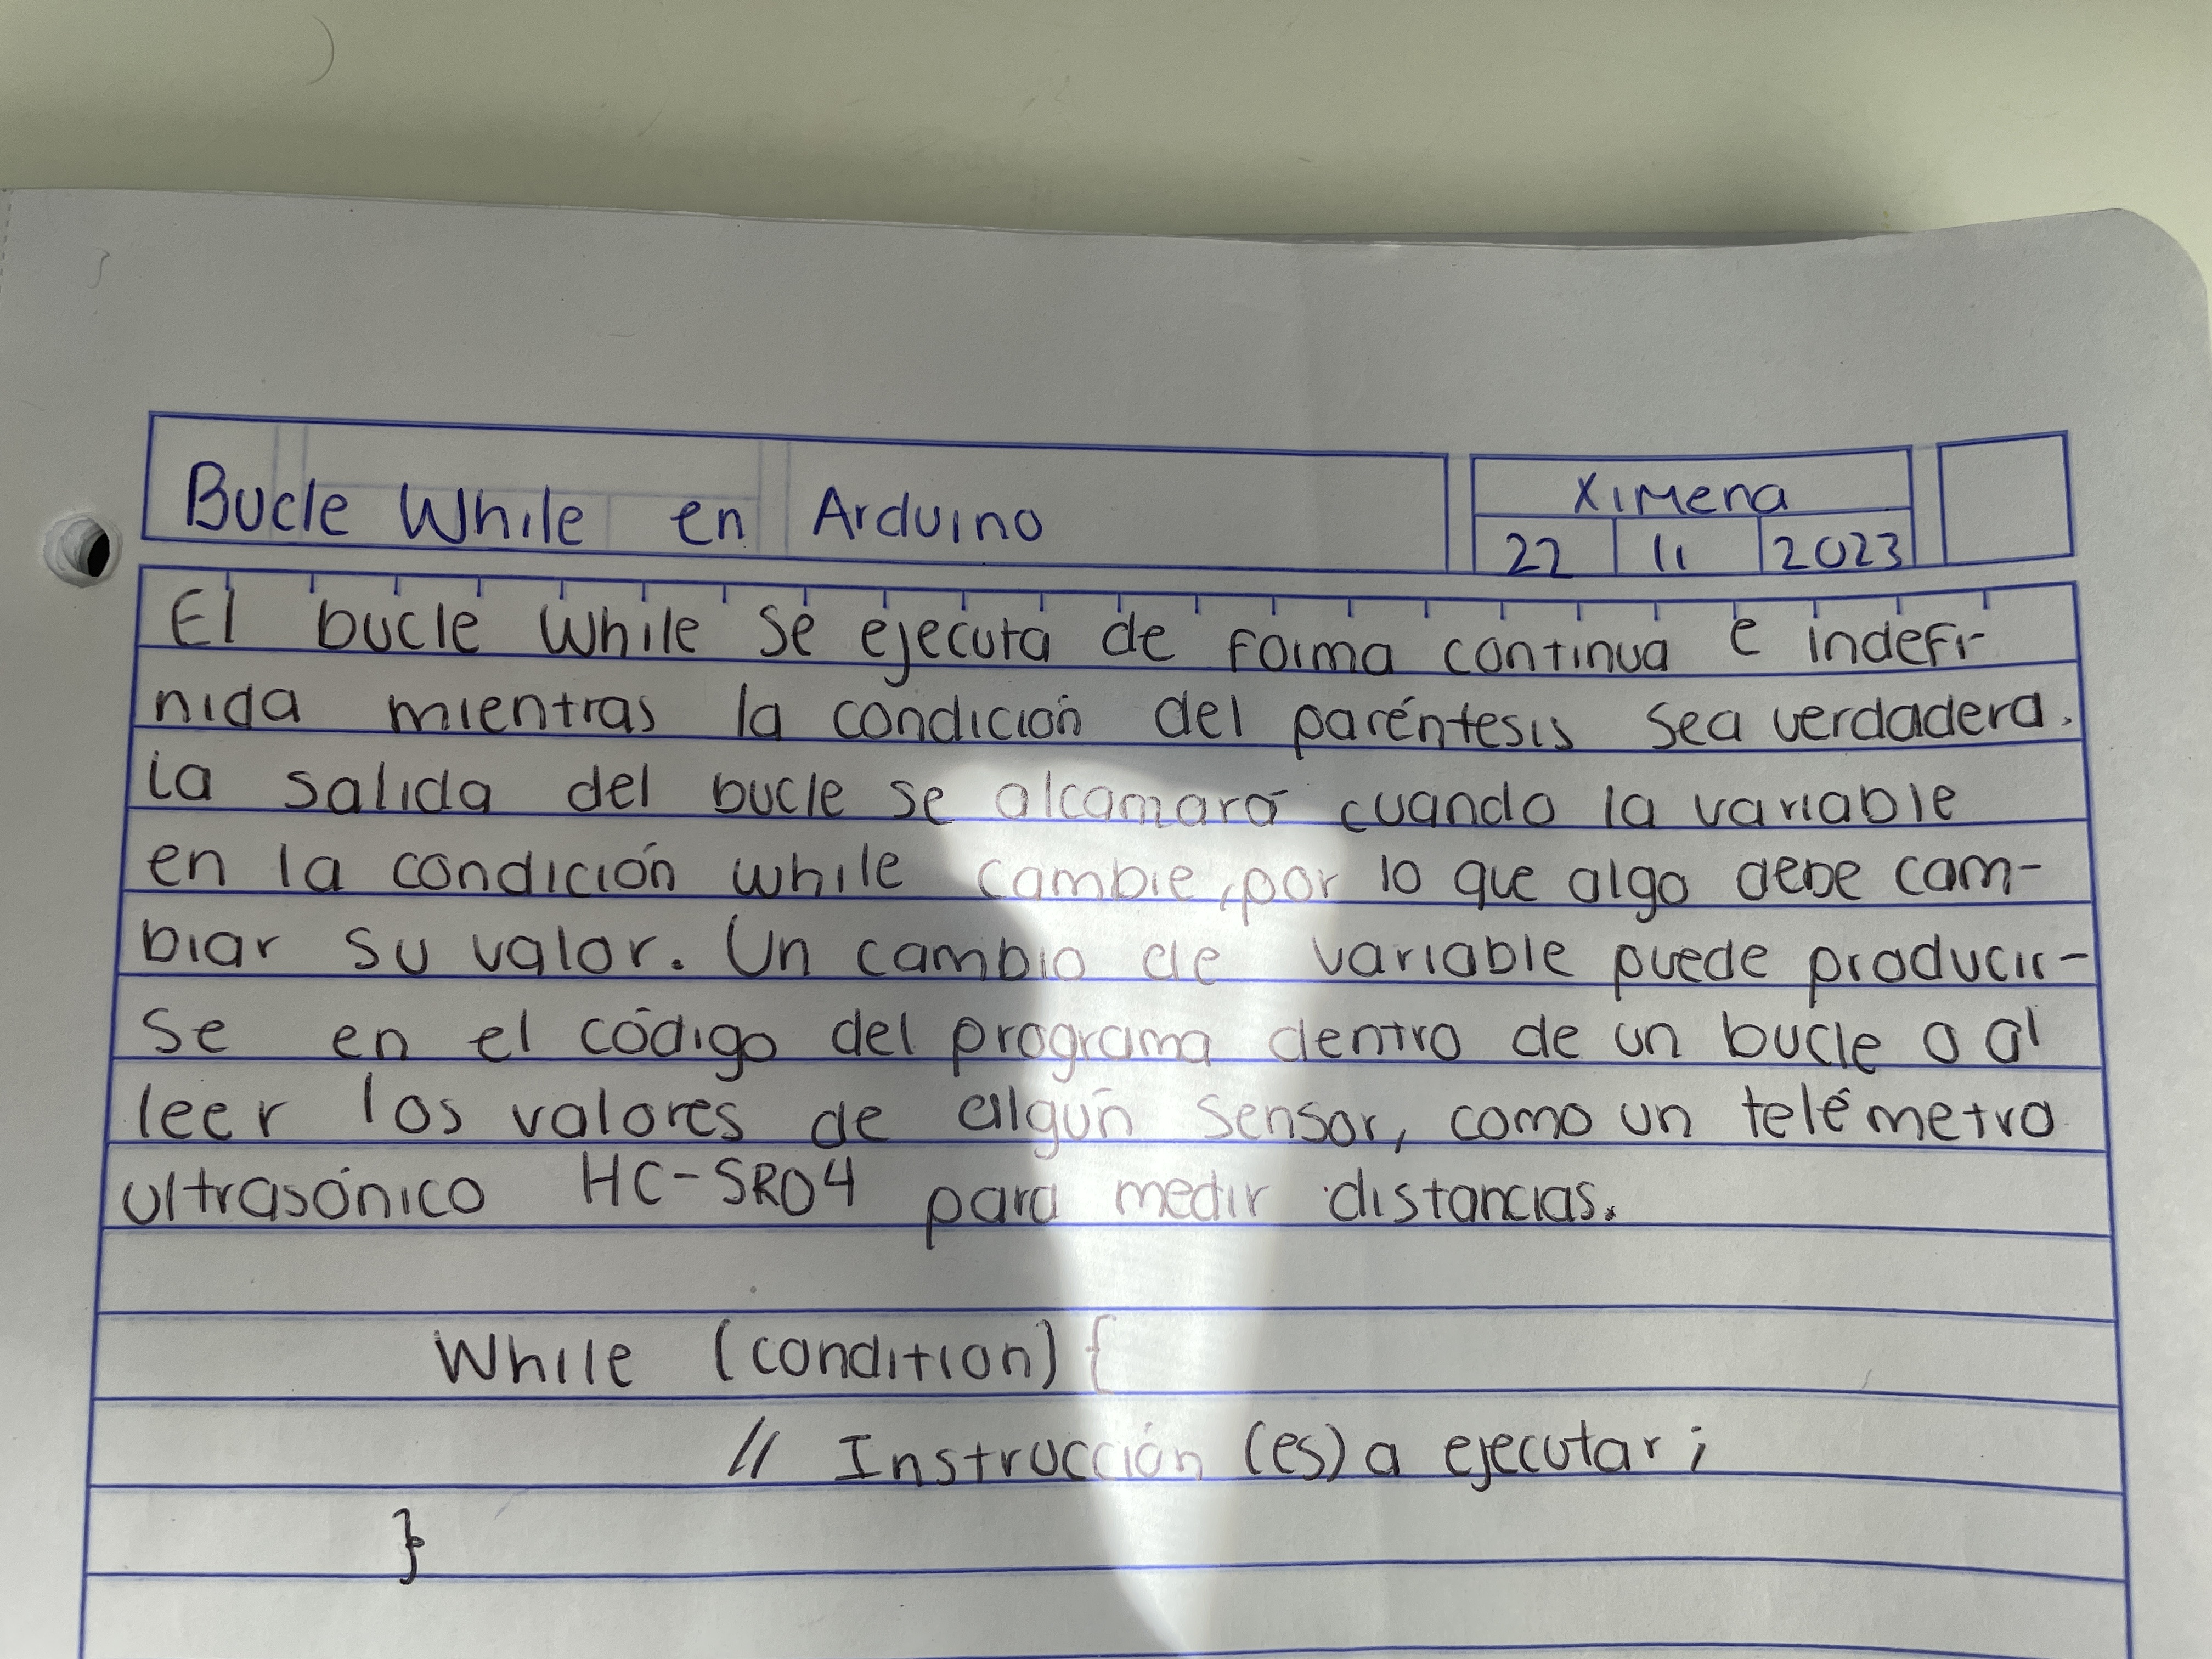 Bucle While en Arduino
Ximena
22 11 2023
El bucle While se ejecuta de forma continua e indefi-
nida mientras la condición del paréntesis sea verdadera.
la salida del bucle se alcanzará cuando la variable
en la condición while cambie, por lo que algo debe cam-
biar su valor. Un cambio de variable puede producir-
se en el código del programa dentro de un bucle o al
leer los valores de algún sensor, como un telémetro
ultrasónico HC-SR04 para medir distancias.
While (condition) {
// Instrucción (es) a ejecutar ;
}